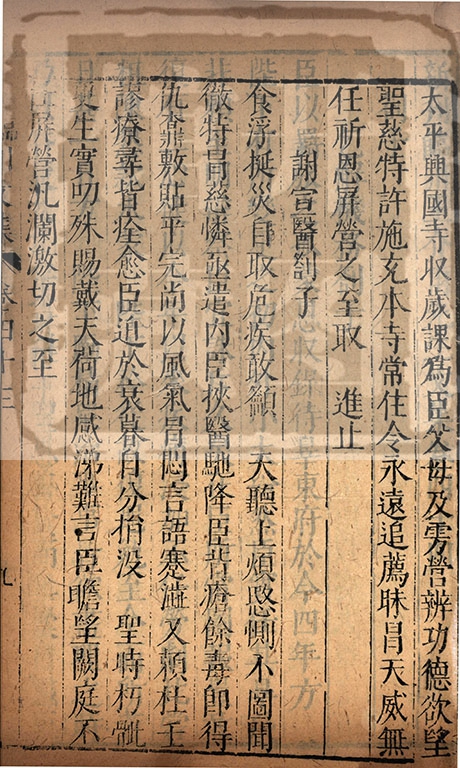 太平興國寺收歲課爲臣父母及雱營辨功德欲望
聖慈特許施充本寺常住令永遠追薦昧冒天威無
任祈恩屏營之至取 進止
謝宣醫劄子
臣以
陛食浮挻災自取危疾敢籲 天聽上煩愍惻不圖聞
徹特冒慈憐亟遣內臣挾醫馳降臣背瘡餘毒即得
仇鼒敷貼平完尚以風氣冒悶言語蹇澁又賴杜壬
診療尋皆痊愈臣迫於衰暮自分捐没 聖時朽骴
更生實叨殊賜戴天荷地感涕難言臣瞻望闕庭不
屏營汎瀾激切之至